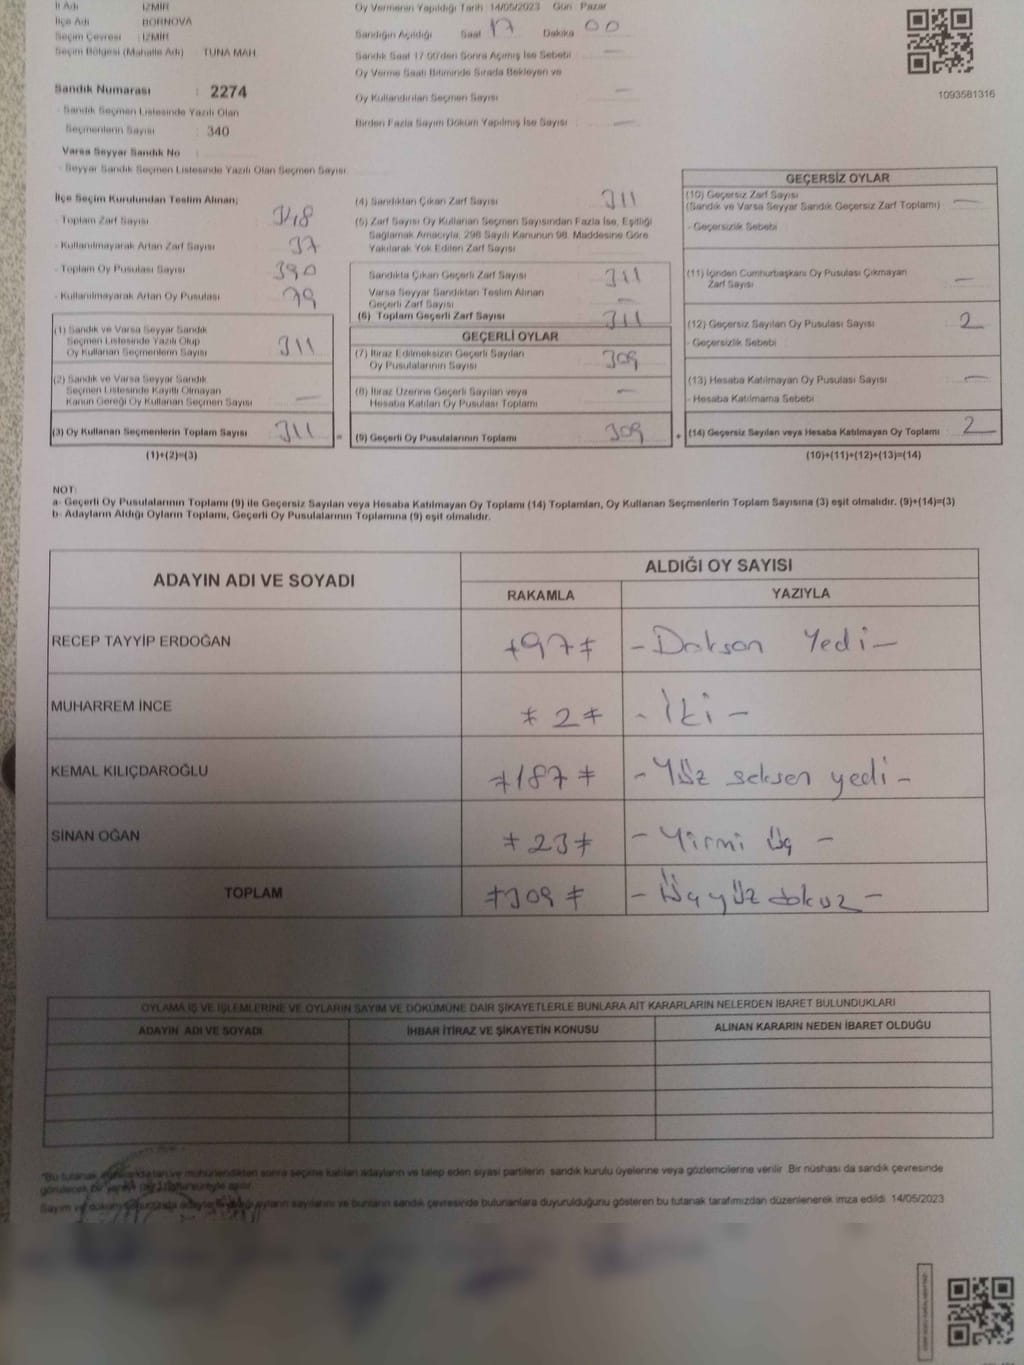 İl Adı : İZMİR
İlçe Adı : BORNOVA
Seçim Çevresi : İZMİR
Seçim Bölgesi (Mahalle Adı) : TUNA MAH.
Sandık Numarası : 2274
- Sandık Seçmen Listesinde Yazılı Olan
Seçmenlerin Sayısı : 340
Varsa Seyyar Sandık No :
- Seyyar Sandık Seçmen Listesinde Yazılı Olan Seçmen Sayısı
Oy Vermenin Yapıldığı Tarih 14/05/2023 Gün : Pazar
Sandığın Açıldığı Saat 17 Dakika 00
Sandık Saat 17:00'den Sonra Açılmış İse Sebebi —
Oy Verme Saati Bitiminde Sırada Bekleyen ve
Oy Kullandırılan Seçmen Sayısı —
Birden Fazla Sayım Döküm Yapılmış İse Sayısı —
1093581316
İlçe Seçim Kurulundan Teslim Alınan;
- Toplam Zarf Sayısı 348
- Kullanılmayarak Artan Zarf Sayısı 37
- Toplam Oy Pusulası Sayısı 390
- Kullanılmayarak Artan Oy Pusulası 79
(1) Sandık ve Varsa Seyyar Sandık
Seçmen Listesinde Yazılı Olup
Oy Kullanan Seçmenlerin Sayısı 311
(2) Sandık ve Varsa Seyyar Sandık
Seçmen Listesinde Kayıtlı Olmayan
Kanun Gereği Oy Kullanan Seçmen Sayısı —
(3) Oy Kullanan Seçmenlerin Toplam Sayısı 311 =
(1)+(2)=(3)
(4) Sandıktan Çıkan Zarf Sayısı 311
(5) Zarf Sayısı Oy Kullanan Seçmen Sayısından Fazla İse, Eşitliği
Sağlamak Amacıyla, 298 Sayılı Kanunun 98. Maddesine Göre
Yakılarak Yok Edilen Zarf Sayısı
Sandıkta Çıkan Geçerli Zarf Sayısı 311
Varsa Seyyar Sandıktan Teslim Alınan
Geçerli Zarf Sayısı —
(6) Toplam Geçerli Zarf Sayısı 311
GEÇERLİ OYLAR
(7) İtiraz Edilmeksizin Geçerli Sayılan
Oy Pusulalarının Sayısı 309
(8) İtiraz Üzerine Geçerli Sayılan veya
Hesaba Katılan Oy Pusulası Toplamı —
(9) Geçerli Oy Pusulalarının Toplamı 309 +
GEÇERSİZ OYLAR
(10) Geçersiz Zarf Sayısı
(Sandık ve Varsa Seyyar Sandık Geçersiz Zarf Toplamı) —
- Geçersizlik Sebebi :
(11) İçinden Cumhurbaşkanı Oy Pusulası Çıkmayan
Zarf Sayısı —
(12) Geçersiz Sayılan Oy Pusulası Sayısı 2
- Geçersizlik Sebebi :
(13) Hesaba Katılmayan Oy Pusulası Sayısı —
- Hesaba Katılmama Sebebi :
(14) Geçersiz Sayılan veya Hesaba Katılmayan Oy Toplamı 2
(10)+(11)+(12)+(13)=(14)
NOT:
a- Geçerli Oy Pusulalarının Toplamı (9) ile Geçersiz Sayılan veya Hesaba Katılmayan Oy Toplamı (14) Toplamları, Oy Kullanan Seçmenlerin Toplam Sayısına (3) eşit olmalıdır. (9)+(14)=(3)
b- Adayların Aldığı Oyların Toplamı, Geçerli Oy Pusulalarının Toplamına (9) eşit olmalıdır.
ADAYIN ADI VE SOYADI ALDIĞI OY SAYISI
RAKAMLA YAZIYLA
RECEP TAYYİP ERDOĞAN ≠97≠ -Doksan Yedi-
MUHARREM İNCE ≠2≠ -İki-
KEMAL KILIÇDAROĞLU ≠187≠ -Yüz seksen yedi-
SİNAN OĞAN ≠23≠ -Yirmi üç-
TOPLAM ≠309≠ -Üçyüz dokuz-
OYLAMA İŞ VE İŞLEMLERİNE VE OYLARIN SAYIM VE DÖKÜMÜNE DAİR ŞİKAYETLERLE BUNLARA AİT KARARLARIN NELERDEN İBARET BULUNDUKLARI
ADAYIN ADI VE SOYADI İHBAR İTİRAZ VE ŞİKAYETİN KONUSU ALINAN KARARIN NEDEN İBARET OLDUĞU
"Bu tutanak ve mühürlendikten sonra seçime katılan adayların ve talep eden siyasi partilerin sandık kurulu üyelerine veya gözlemcilerine verilir. Bir nüshası da sandık çevresinde
görülecek bir yere asılır.
Sayım ve döküm oyların sayılarını ve bunların sandık çevresinde bulunanlara duyurulduğunu gösteren bu tutanak tarafımızdan düzenlenerek imza edildi. 14/05/2023